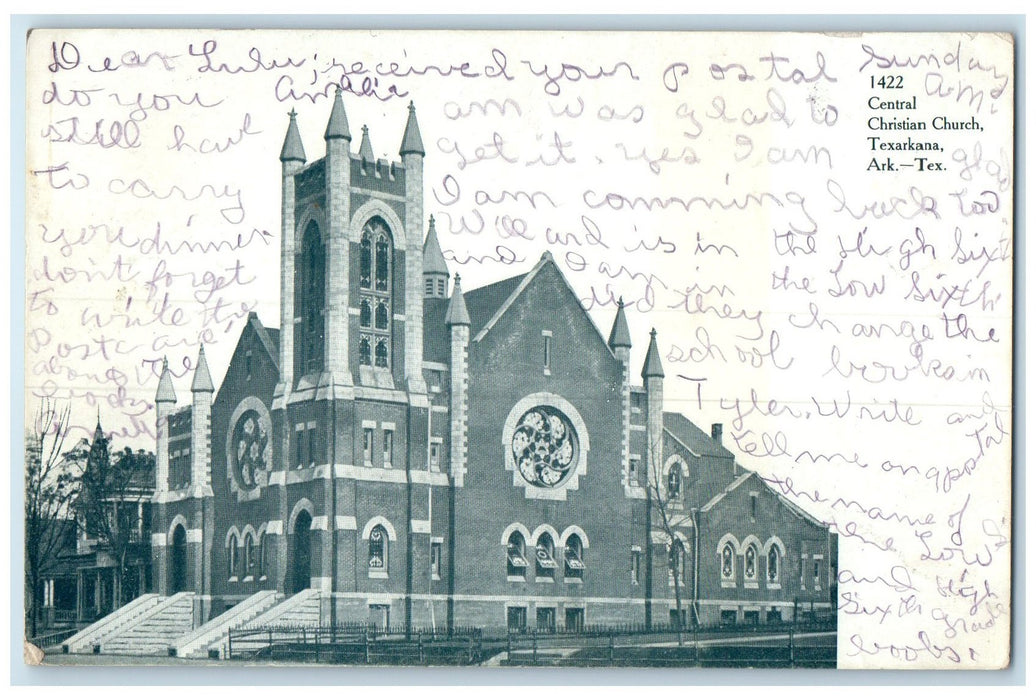 Sunday
A.M.
Dear Lulu; received your postal
am was glad to
get it. yes I am glad
I am comming back too.
Will and is in the High Sixth
and I am in the Low Sixth
did they change the
school books in
Tyler. Write and
tell me on a postal
the name of
the Low
and High
Sixth grade
books.
do you
still have
to carry
you dinner
don't forget
to write the
Postcard
about the
books
1422
Central
Christian Church,
Texarkana,
Ark.—Tex.